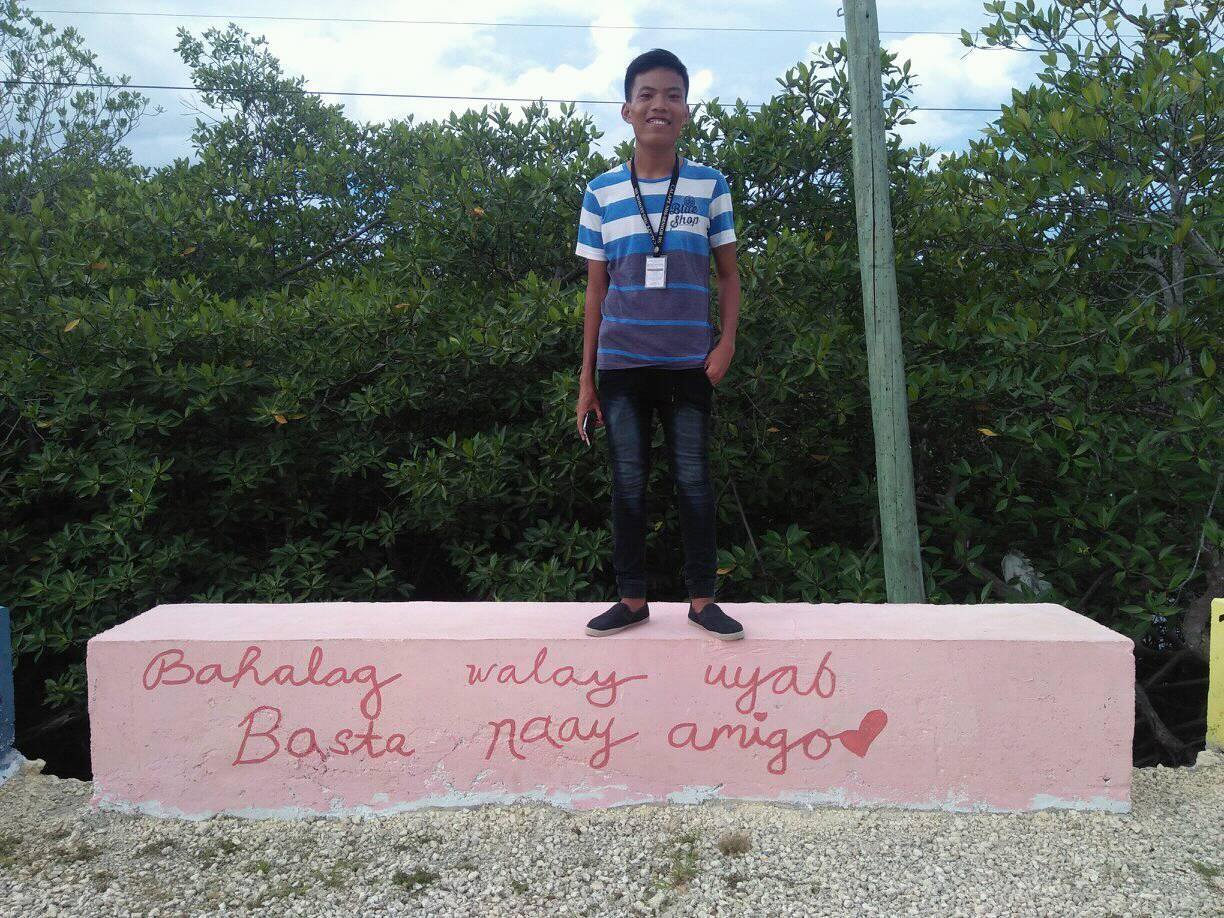 Blue
Shop
Bahalag walay uyab
Basta naay amigo